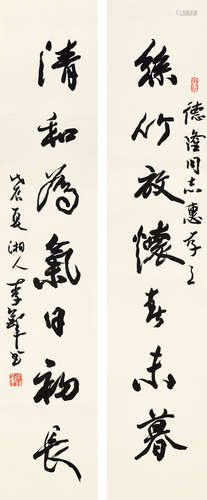 德隆同志惠存
絲竹放懷春未暮
清和為氣日初長
戊辰夏湘人李鐸書